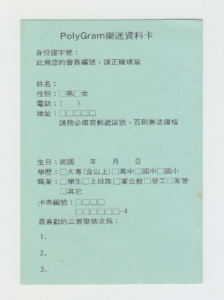 PolyGram樂迷資料卡
身份證字號：
此為您的會員編號，請正確填寫
姓名：
性別：□男□女
電話：(　)
地址：□□□□□
請務必填寫郵遞區號，否則無法建檔
生日：民國　年　月　日
學歷：□大專(含以上)□高中□國中□國小
職業：□學生□上班族□軍公教□勞工□家管
□其它
卡帶編號：□□□□
□□□□□□-4
最喜歡的三首歌依次為：
1.
2.
3.